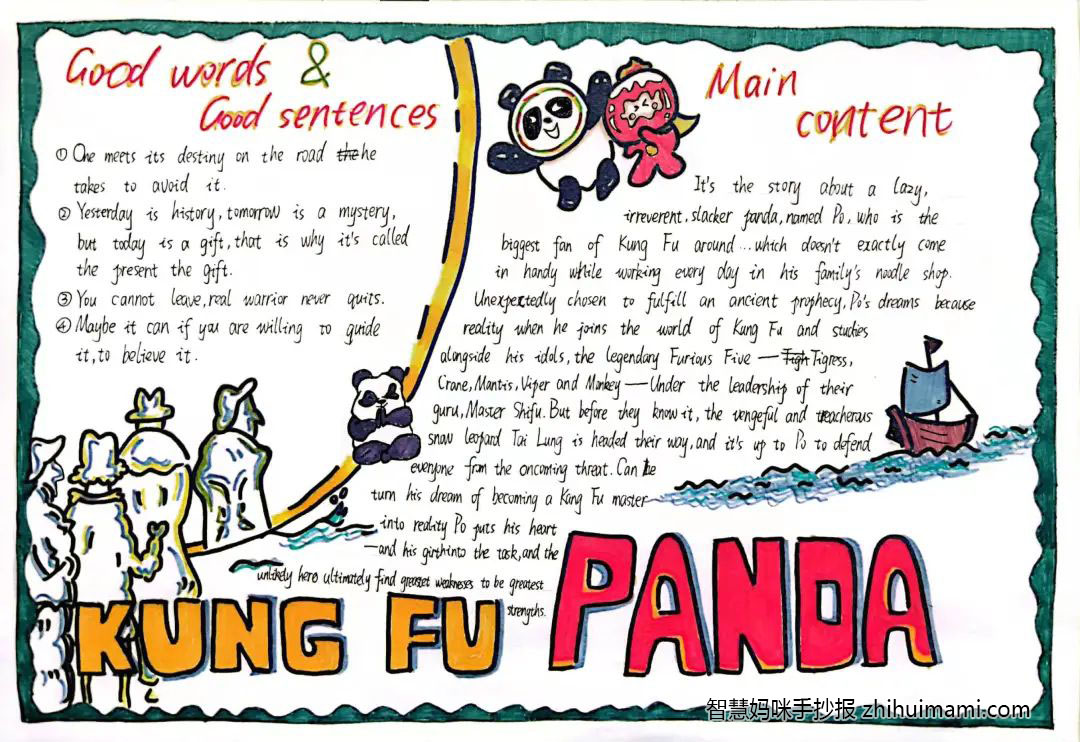 Good words &
Good sentences
① One meets its destiny on the road the he
takes to avoid it.
② Yesterday is history, tomorrow is a mystery,
but today is a gift, that is why it's called
the present the gift.
③ You cannot leave, real warrior never quits.
④ Maybe it can if you are willing to guide
it, to believe it.
Main
content
It's the story about a lazy,
irreverent, slacker panda, named Po, who is the
biggest fan of Kung Fu around...which doesn't exactly come
in handy while working every day in his family's noodle shop.
Unexpectedly chosen to fulfill an ancient prophecy, Po's dreams because
reality when he joins the world of Kung Fu and studies
alongside his idols, the legendary Furious Five — Tigress,
Crane, Mantis, Viper and Monkey — Under the leadership of their
guru, Master Shifu. But before they know it, the vengeful and treacherous
snow leopard Tai Lung is headed their way, and it's up to Po to defend
everyone from the oncoming threat. Can he
turn his dream of becoming a Kung Fu master
into reality Po puts his heart
—and his girth into the task, and the
unlikely hero ultimately find greatest weaknesses to be greatest
strengths.
KUNG FU PANDA
智慧妈咪手抄报 zhihuimami.com